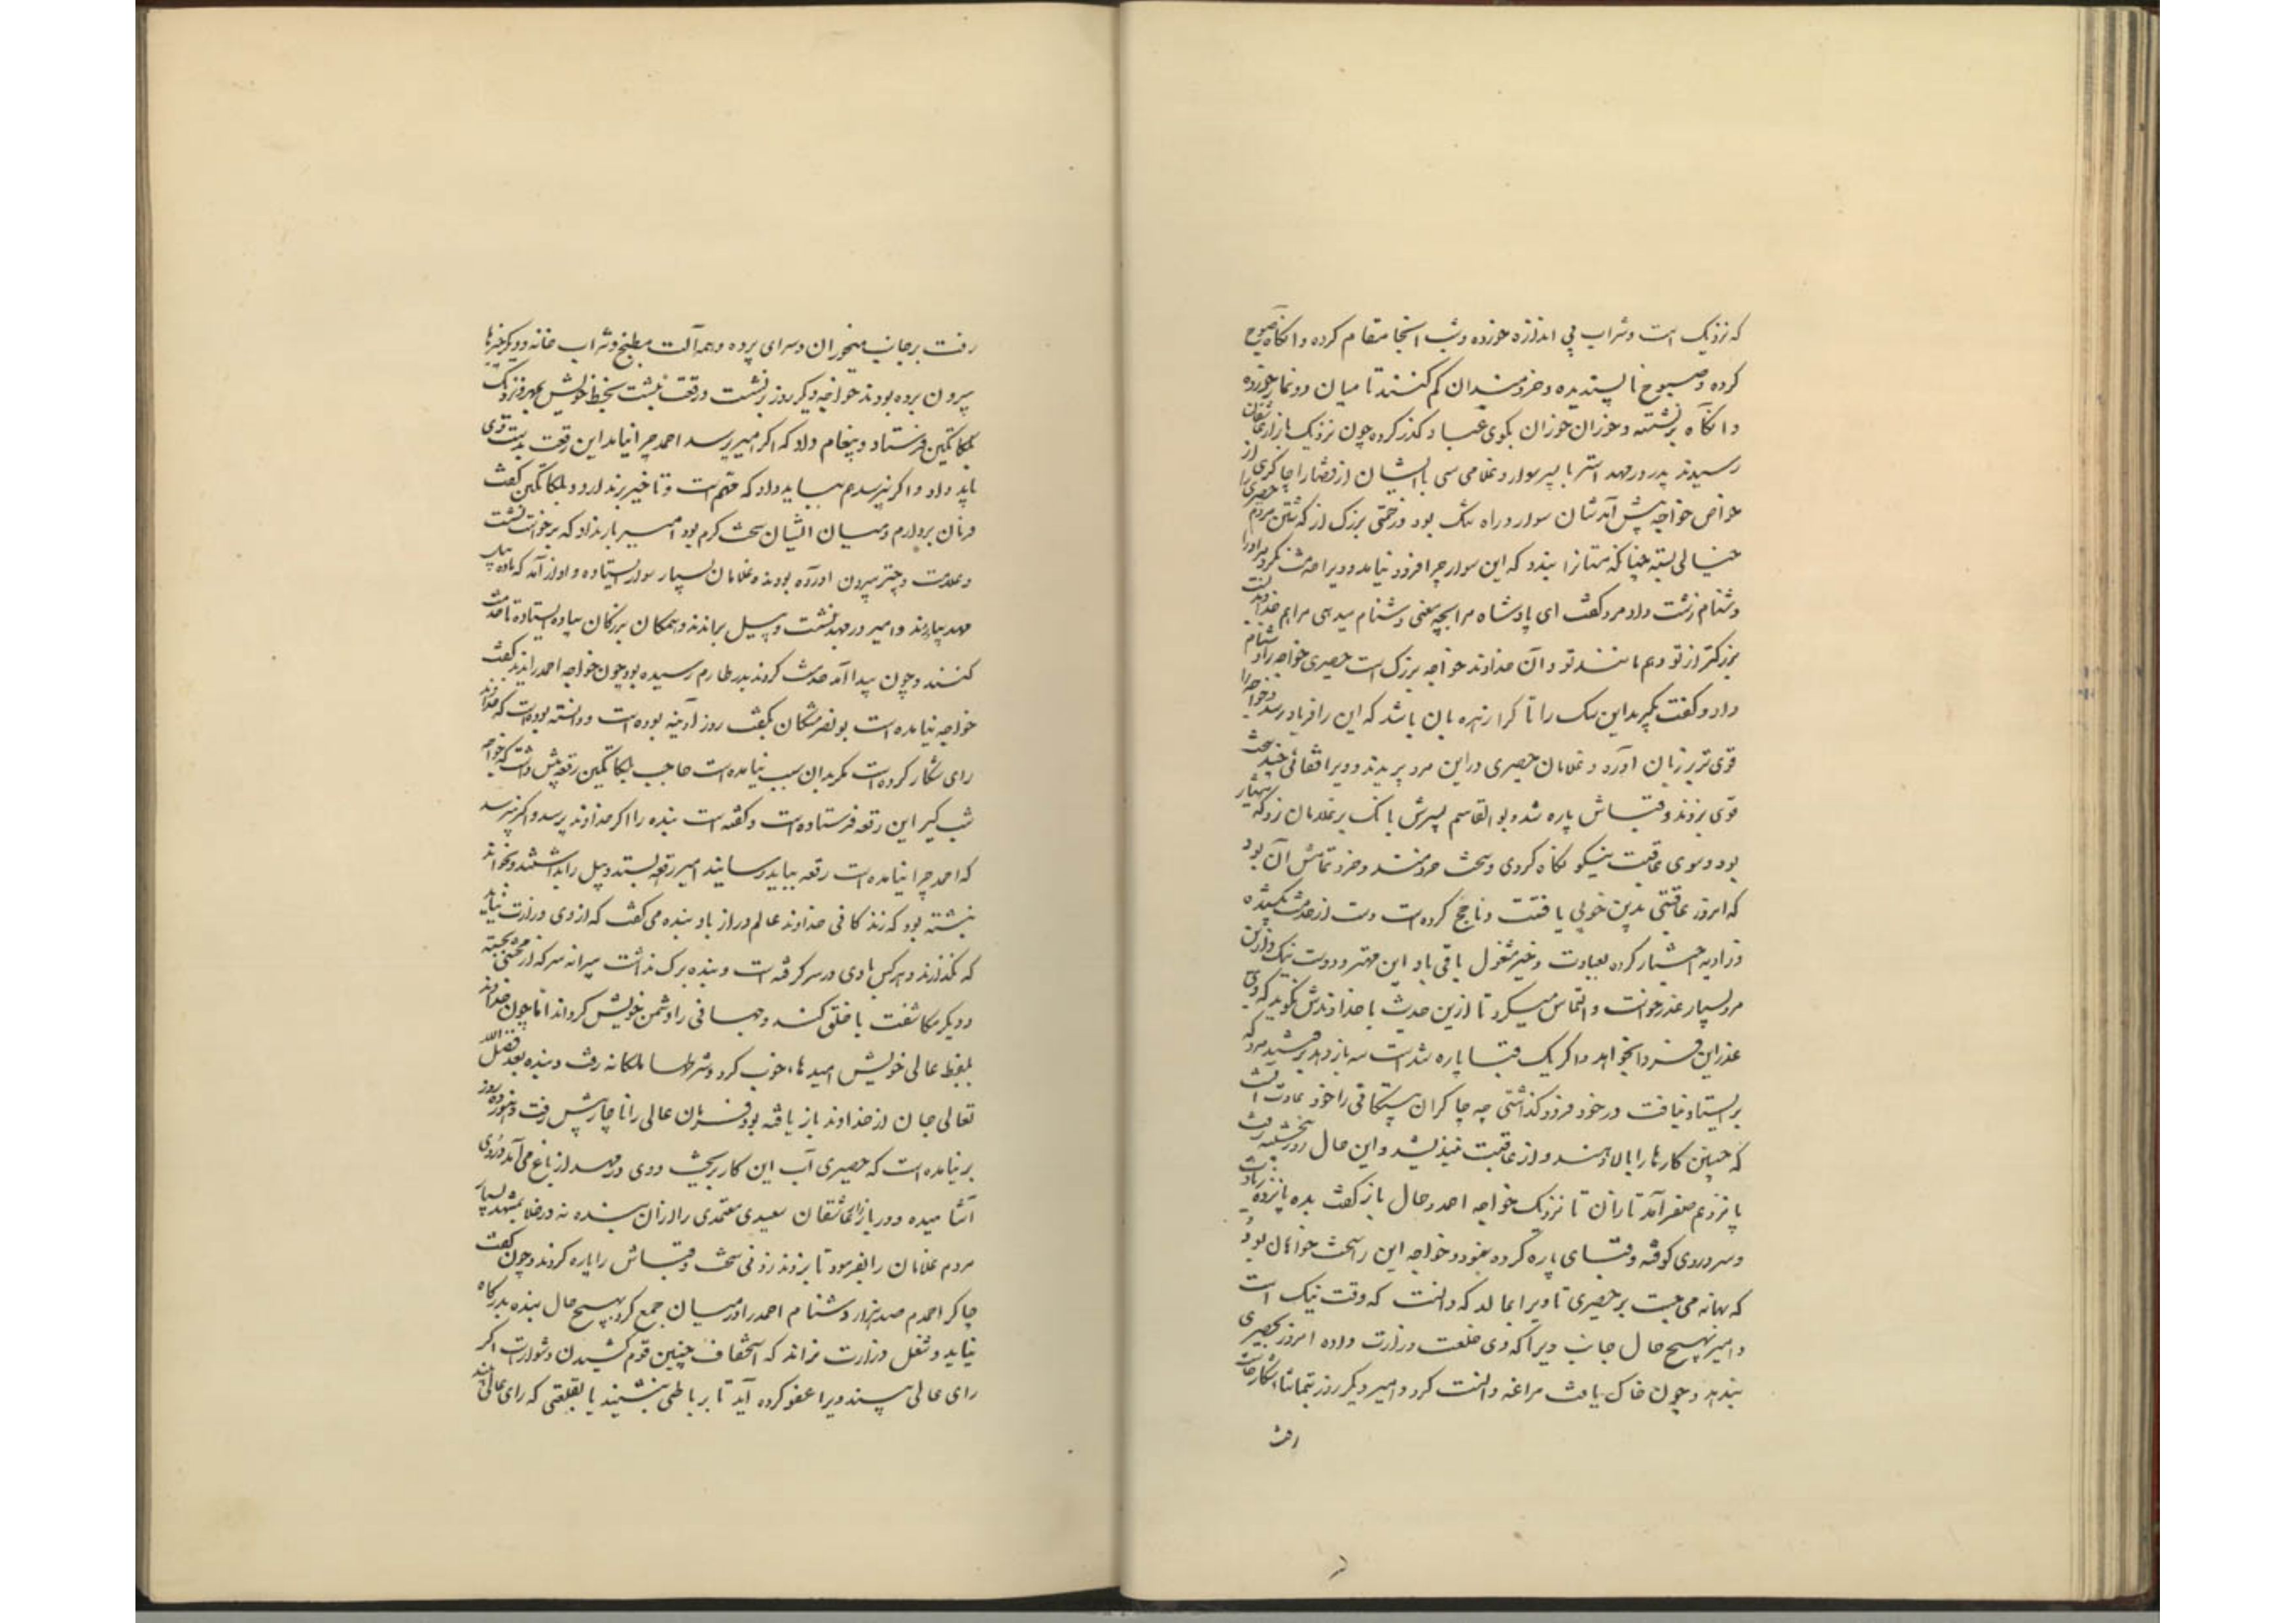 که نزدیک است وشراب بی اندازه خورده وشب آنجا مقام کرده وانکاه صبوح
کرده وصبوح ناپسندیده وخردمندان کم کنند تا میان دو نماز خورده
وانکاه برنشسته وخوران خوران بکوی عباد کذر کرده چون نزدیک بازار عاشقان
رسیدند پدر در مهد استر با پسر سوار وغلامی سی با ایشان از قضا را چاکری از
خواص خواجه پیش آمدشان سوار وراه تنک بود وزحمتی بزرک از کذشتن مردم حصیری را
خیالی بسته چنانکه مستانرا بندد که این سوار چرا فرود نیامد وویرا خدمت نکرد مر او را
دشنام زشت داد مرد کفت ای پادشاه مرا بچه معنی دشنام میدهی مرا هم خداوندیست
بزرکتر از تو وهم مانند تو وآن خداوند خواجه بزرک است حصیری خواجه را دشنام
داد وکفت بکیرید این سک را تا کرا زهره آن باشد که این را فریاد رسد وخواجه را
قوی تر بر زبان آورد وغلامان حصیری در این مرد پریدند وویرا قفائی چند سخت
قوی بزدند وقباش پاره شد وبوالقاسم پسرش بانک بر غلامان زد که هشیار
بود وسوی عاقبت نیکو نکاه کردی وسخت خردمند وخرد تمامش آن بود
که امروز عاقبتی بدین خوبی یافتست وتا حج کرده است دست از خدمت بکشیده
وزاویه اختیار کرده بعبادت وخیر مشغول باقی باد این مهتر ودوست نیک وازین
مرد بسیار عذر خواست والتماس میکرد تا ازین حدیث با خداوندش نکوید که وی
عذر این فردا بخواهد واکر یک قبا پاره شدست سه باز دهد برفتند مرد که
بر ایستاد نیافت در خود فرو کذاشتی چه چاکران بیستکانی را خود عادت آنست
که چنین کارها را بالا دهند واز عاقبت نیندیشند واین حال روز پنجشنبه رفت
پانزدهم صفر آمد تازان تا نزدیک خواجه احمد وحال باز کفت بده پانزده زیادت
وسر وروی کوفته وقبای پاره کرده بنمود وخواجه این را سخت خواهان بود
که بهانه می جست بر حصیری تا ویرا بمالد که دانست که وقت نیک است
وامیر بهیچ حال جانب ویرا که دی خلعت وزارت داده امروز بحصیری
بندهد وچون خاک یافت مراغه دانست کرد وامیر دیکر روز بتماشا شکار خاست
رفت
رفت برجانب میخوران وسرای پرده وهمه آلت مطبخ وشراب خانه ودیکر چیزها
بیرون برده بودند خواجه دیکر روز برنشست ورقعه نبشت بخط خویش بمهر ونزدیک
بلکاتکین فرستاد وپیغام داد که اکر امیر پرسد احمد چرا نیامد این رقعه بدست وی
باید داد واکر نپرسد هم بباید داد که مهم است وتاخیر برندارد وبلکاتکین کفت
فرمان بردارم ومیان ایشان سخت کرم بود امیر بار نداد که برخواست نشست
وعلامت وچتر بیرون آورده بودند وغلامان بسیار سوار ایستاده وآواز آمد که ماده پیل
مهد بیارند وامیر در مهد نشست وپیل براندند وهمکان بزرکان پیاده ایستاده تا خدمت
کنند وچون پیدا آمد خدمت کردند بدر طارم رسیده بود چون خواجه احمد را ندید کفت
خواجه نیامده است بونصر مشکان بکفت روز آدینه بوده است ودانسته بوده است که خداوند
رای شکار کرده است مکر بدان سبب نیامده است حاجب بلکاتکین رقعه پیش داشت که خواجه
شب کیر این رقعه فرستاده است وکفته است بنده را اکر خداوند پرسد واکر نپرسد
که احمد چرا نیامده است رقعه بباید رسانید امیر رقعه بستد وپیل را بداشتند وبخواند
نبشته بود که زندکانی خداوند عالم دراز باد بنده می کفت که از وی وزارت نیاید
که نکذارند وهر کس بادی در سر کرفته است وبنده برک نداشت پیرانه سر که از محنتی بجسته
ودیکر مکاشفت با خلق کند وجهانی را دشمن خویش کرداند اما چون خداوند
بلفظ عالی خویش امیدهاء خوب کرد وشرطها ملکانه رفت وبنده بعد فضل الله
تعالی جان از خداوند باز یافته بود فرمان عالی را ناچار پیش رفت وهنوز ده روز
بر نیامده است که حصیری آب این کار بریخت ووی در مهد از باغ می آمد دُردی
آشامیده ودر بازار عاشقان سعیدی معتمدی را از آن بنده نه در خلا بمشهد بسیار
مردم غلامان را بفرمود تا بزدند زدنی سخت وقباش را پاره کردند وچون کفت
چاکر احمدم صد هزار دشنام احمد را در میان جمع کرد بهیچ حال بنده بدرکاه
نیاید وشغل وزارت نراند که استخفاف چنین قوم کشیدن دشوار است اکر
رای عالی بیند ویرا عفو کرده آید تا برباطی بنشیند یا بقلعتی که رای عالی بیند